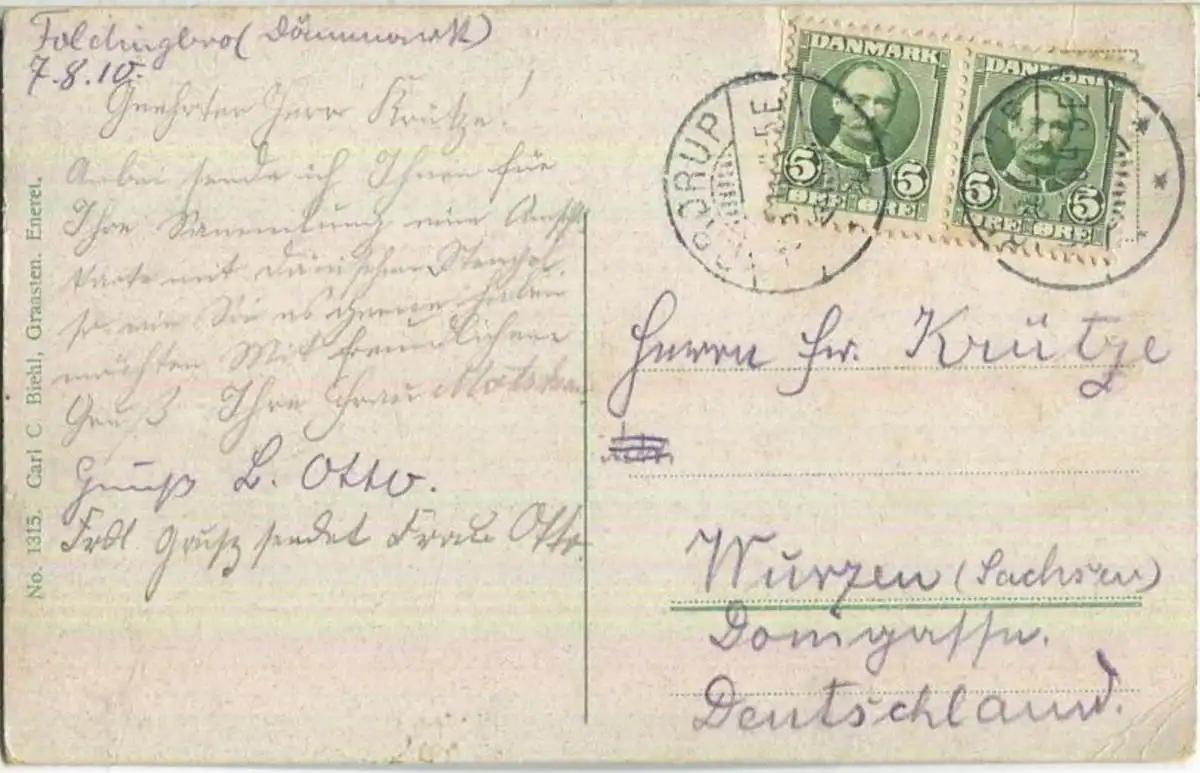 Foldingbro (Dännmark)
7.8.10.
Geehrter Herr Krütze!
Anbei sende ich Ihnen für
Ihre Sammlung eine Ansichts
karte mit dänischen Stempel
so wie Sie es gerne haben
möchten. Mit freundlichem
Gruß Ihre Frau
Gruß B. Otto.
Frdl Grusz sendet Frau Otto
No. 1315. Carl C. Biehl, Graasten. Eneret.
DANMARK
5 5
ØRE ØRE
DANMARK
5 5
ØRE ØRE
Herrn Fr. Krütze
Wurzen (Sachsen)
Domgasse.
Deutschland.